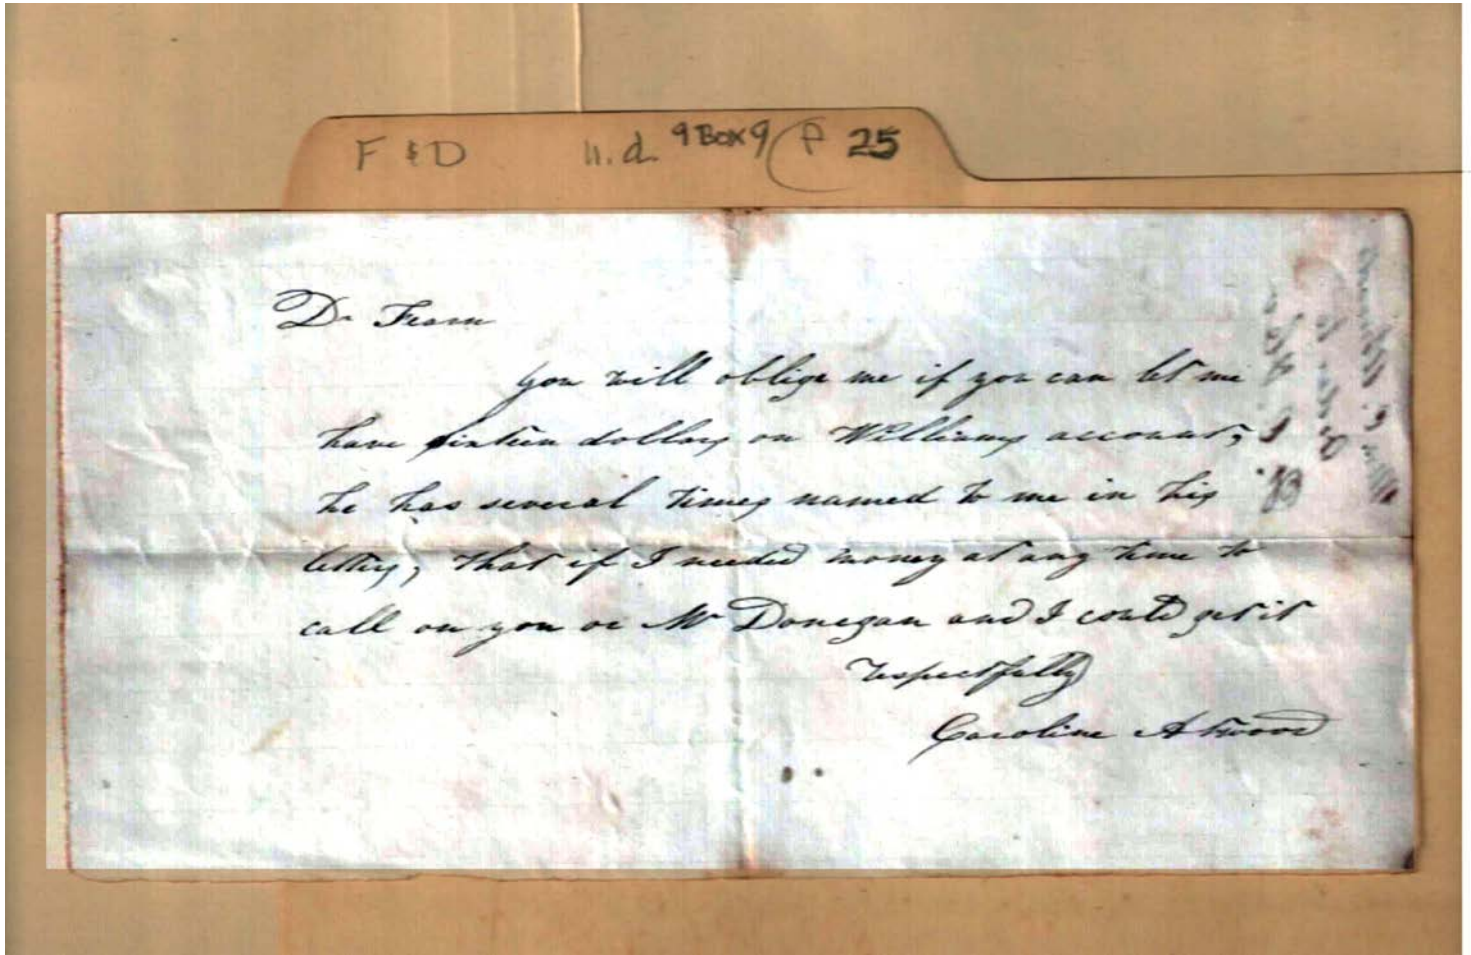 F & D n.d. 9 Box 9 P 25
Dr Fearn
you will oblige me if you can let me
have sixteen dollars on Williams account;
he has several times named to me in his
letters, that if I needed money at any time to
call on you or Mr Donegan and I could get it
respectfully
Caroline Atwood